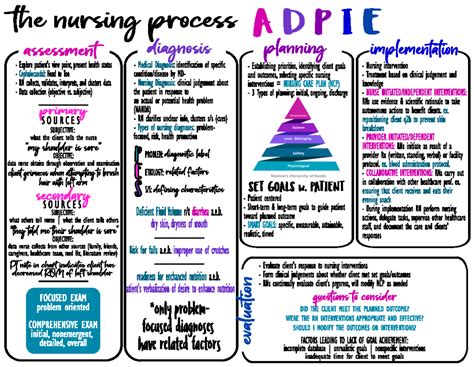 the nursing process ADPIE
assessment
- Explore patient's view point, present health status
- Cephalocaudal: Head to Toe
- RN collects, validates, interprets, and clusters data
- Data collection (objective vs. subjective)
primary
SOURCES
SUBJECTIVE:
what the client tells the nurse
"my shoulder is sore"
OBJECTIVE:
data nurse obtains through observation and examination
client grimaces when attempting to brush
hair with left arm
secondary
SOURCES
SUBJECTIVE:
what others tell nurse | what the client tells others
"they told me their shoulder is sore"
OBJECTIVE:
data nurse collects from other sources (family, friends,
caregivers, healthcare team, lit. review, med. records)
PT note in chart indicates client has
decreased ROM of left shoulder
FOCUSED EXAM
problem oriented
COMPREHENSIVE EXAM
initial, nonemergent,
detailed, overall
diagnosis
- Medical Diagnosis: identification of specific
condition/disease by MD
- Nursing Diagnosis: clinical judgement about
the patient in response to
an actual or potential health problem
(NANDA)
- RN clarifies unclear info, clusters s/s (cues)
- Types of nursing diagnoses: problem-
focused, risk, health promotion
P PROBLEM: diagnostic label
E ETIOLOGY: related factors
S S/S: defining characteristics
Deficient Fluid Volume r/t diarrhea
a.e.b. dry skin, dryness of mouth,
weakness
Risk for falls a.e.b. improper use of crutches
readiness for enchanced nutrition a.e.b.
patient's verbalization of desire to enhance nutrition
*only problem-
focused diagnoses
have related factors
planning
- Establishing priorities, identifying client goals
and outcomes, selecting specific nursing
interventions = NURSING CARE PLAN (NCP)
- 3 Types of planning: initial, ongoing, discharge
Esteem
Love, Belonging
Safety/Security
Physiological
Maslow's Hierarchy of Needs
SET GOALS w. PATIENT
- Patient centered
- Short-term & long-term goals to guide patient
toward planned outcome
- SMART: specific, measurable, attainable,
realistic, timed
implementation
- Nursing intervention
- Treatment based on clinical judgement and
knowledge
- NURSE INITIATED/INDEPENDENT INTERVENTIONS:
RNs use evidence & scientific rationale to take
autonomous actions to benefit clients. ex.
repositioning client q2h to prevent skin
breakdown
- PROVIDER INITIATED/DEPENDENT
INTERVENTIONS:
RNs initiate as result of a
provider Rx (written, standing, verbal) or facility
protocol. ex. administering blood
- COLLABORATIVE INTERVENTIONS: RNs carry out
in collaboration with other healthcare prof. ex.
ensuring that client receives and eats their
evening snack
- During implementation RN will perform nursing
actions, delegate tasks, supervise other healthcare
staff, and document the clients care and
responses
evaluation
- Evaluate client's response to nursing interventions
- Form clinical judgements about whether client met set goals/outcomes
- RNs continually evaluate client's progress, will modify NCP as needed
questions to consider
DID THE CLIENT MEET THE PLANNED OUTCOME?
WERE THE RN INTERVENTIONS APPROPRIATE AND EFFECTIVE?
SHOULD I MODIFY THE OUTCOMES OR INTERVENTIONS?
FACTORS LEADING TO LACK OF GOAL ACHIEVEMENT:
incomplete database | unrealistic goals | nonspecific interventions
inadequate time for client to meet goals